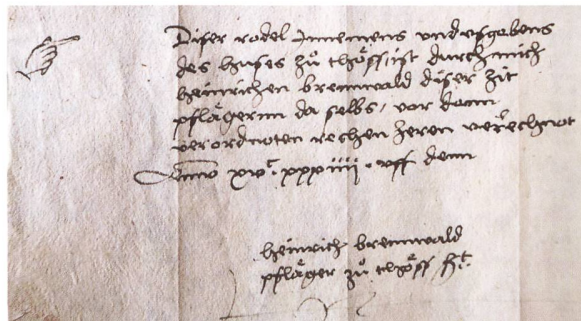 Diser rodel Innemens und usgebens
des huses zů thöss, ist durch mich
heinrichen brennwald diser zit
pflägernn da selbs, vor denn
verordnoten rechen heren verrechnot
Anno xvc. xxxiiii. uff denn
heinrich brennwald
pfläger zů thöss